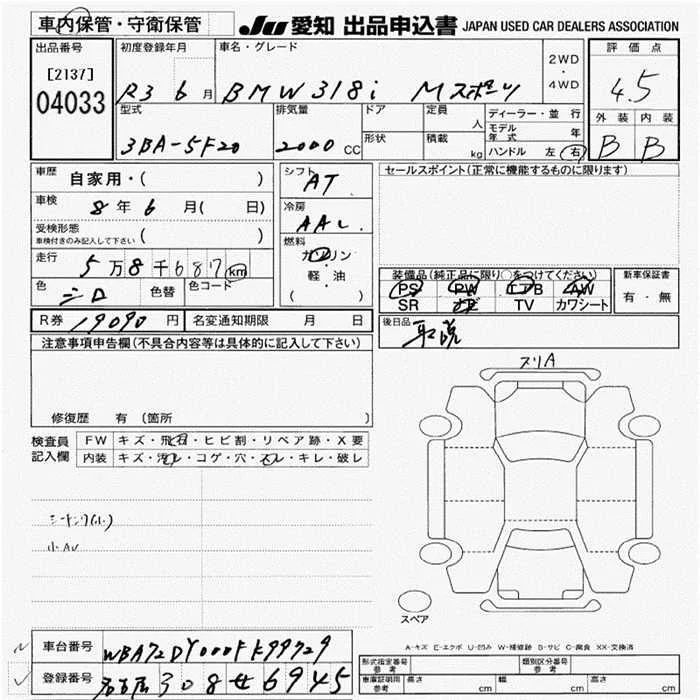 車内保管・守衛保管
JU 愛知 出品申込書 JAPAN USED CAR DEALERS ASSOCIATION
出品番号
[2137]
04033
初度登録年月
R3 6 月
車名・グレード
BMW 318i Mスポーツ
2WD
・
4WD
評価点
4.5
外装 内装
B B
型式
3BA-5F20
排気量
2000 CC
ドア
形状
定員
人
積載
kg
ディーラー・並行
モデル年式 年
ハンドル 左 右
車歴
自家用・( )
車検
8 年 6 月( 日)
受検形態
車検付きのみ記入して下さい ( )
走行
5 万 8 千 6 8 7 km
色
シロ
色替
色コード
シフト
AT
冷房
AAC
燃料
ガソリン
・
軽・油
( )
セールスポイント(正常に機能するものに限ります)
装備品(純正品に限り○をつけてください)
PS PW エアB AW
SR ナビ TV カワシート
新車保証書
有・無
R券 19090 円 名変通知期限 月 日
後日品
取説
注意事項申告欄(不具合内容等は具体的に記入して下さい)
修復歴 有 (箇所
検査員
記入欄
FW キズ・飛石・ヒビ割・リペア跡・X要
内装 キズ・汚レ・コゲ・穴・スレ・キレ・破レ
小AU
スリA
スペア
A-キズ E-エクボ U-凹み W-補修跡 S-サビ C-腐食 XX-交換済
車台番号 WBA72DY000FK99729
登録番号 名古屋 308 せ 6945
形式指定番号
参考
類別区分番号
参考
車庫証明用
参考
長さ cm 幅 cm 高さ cm